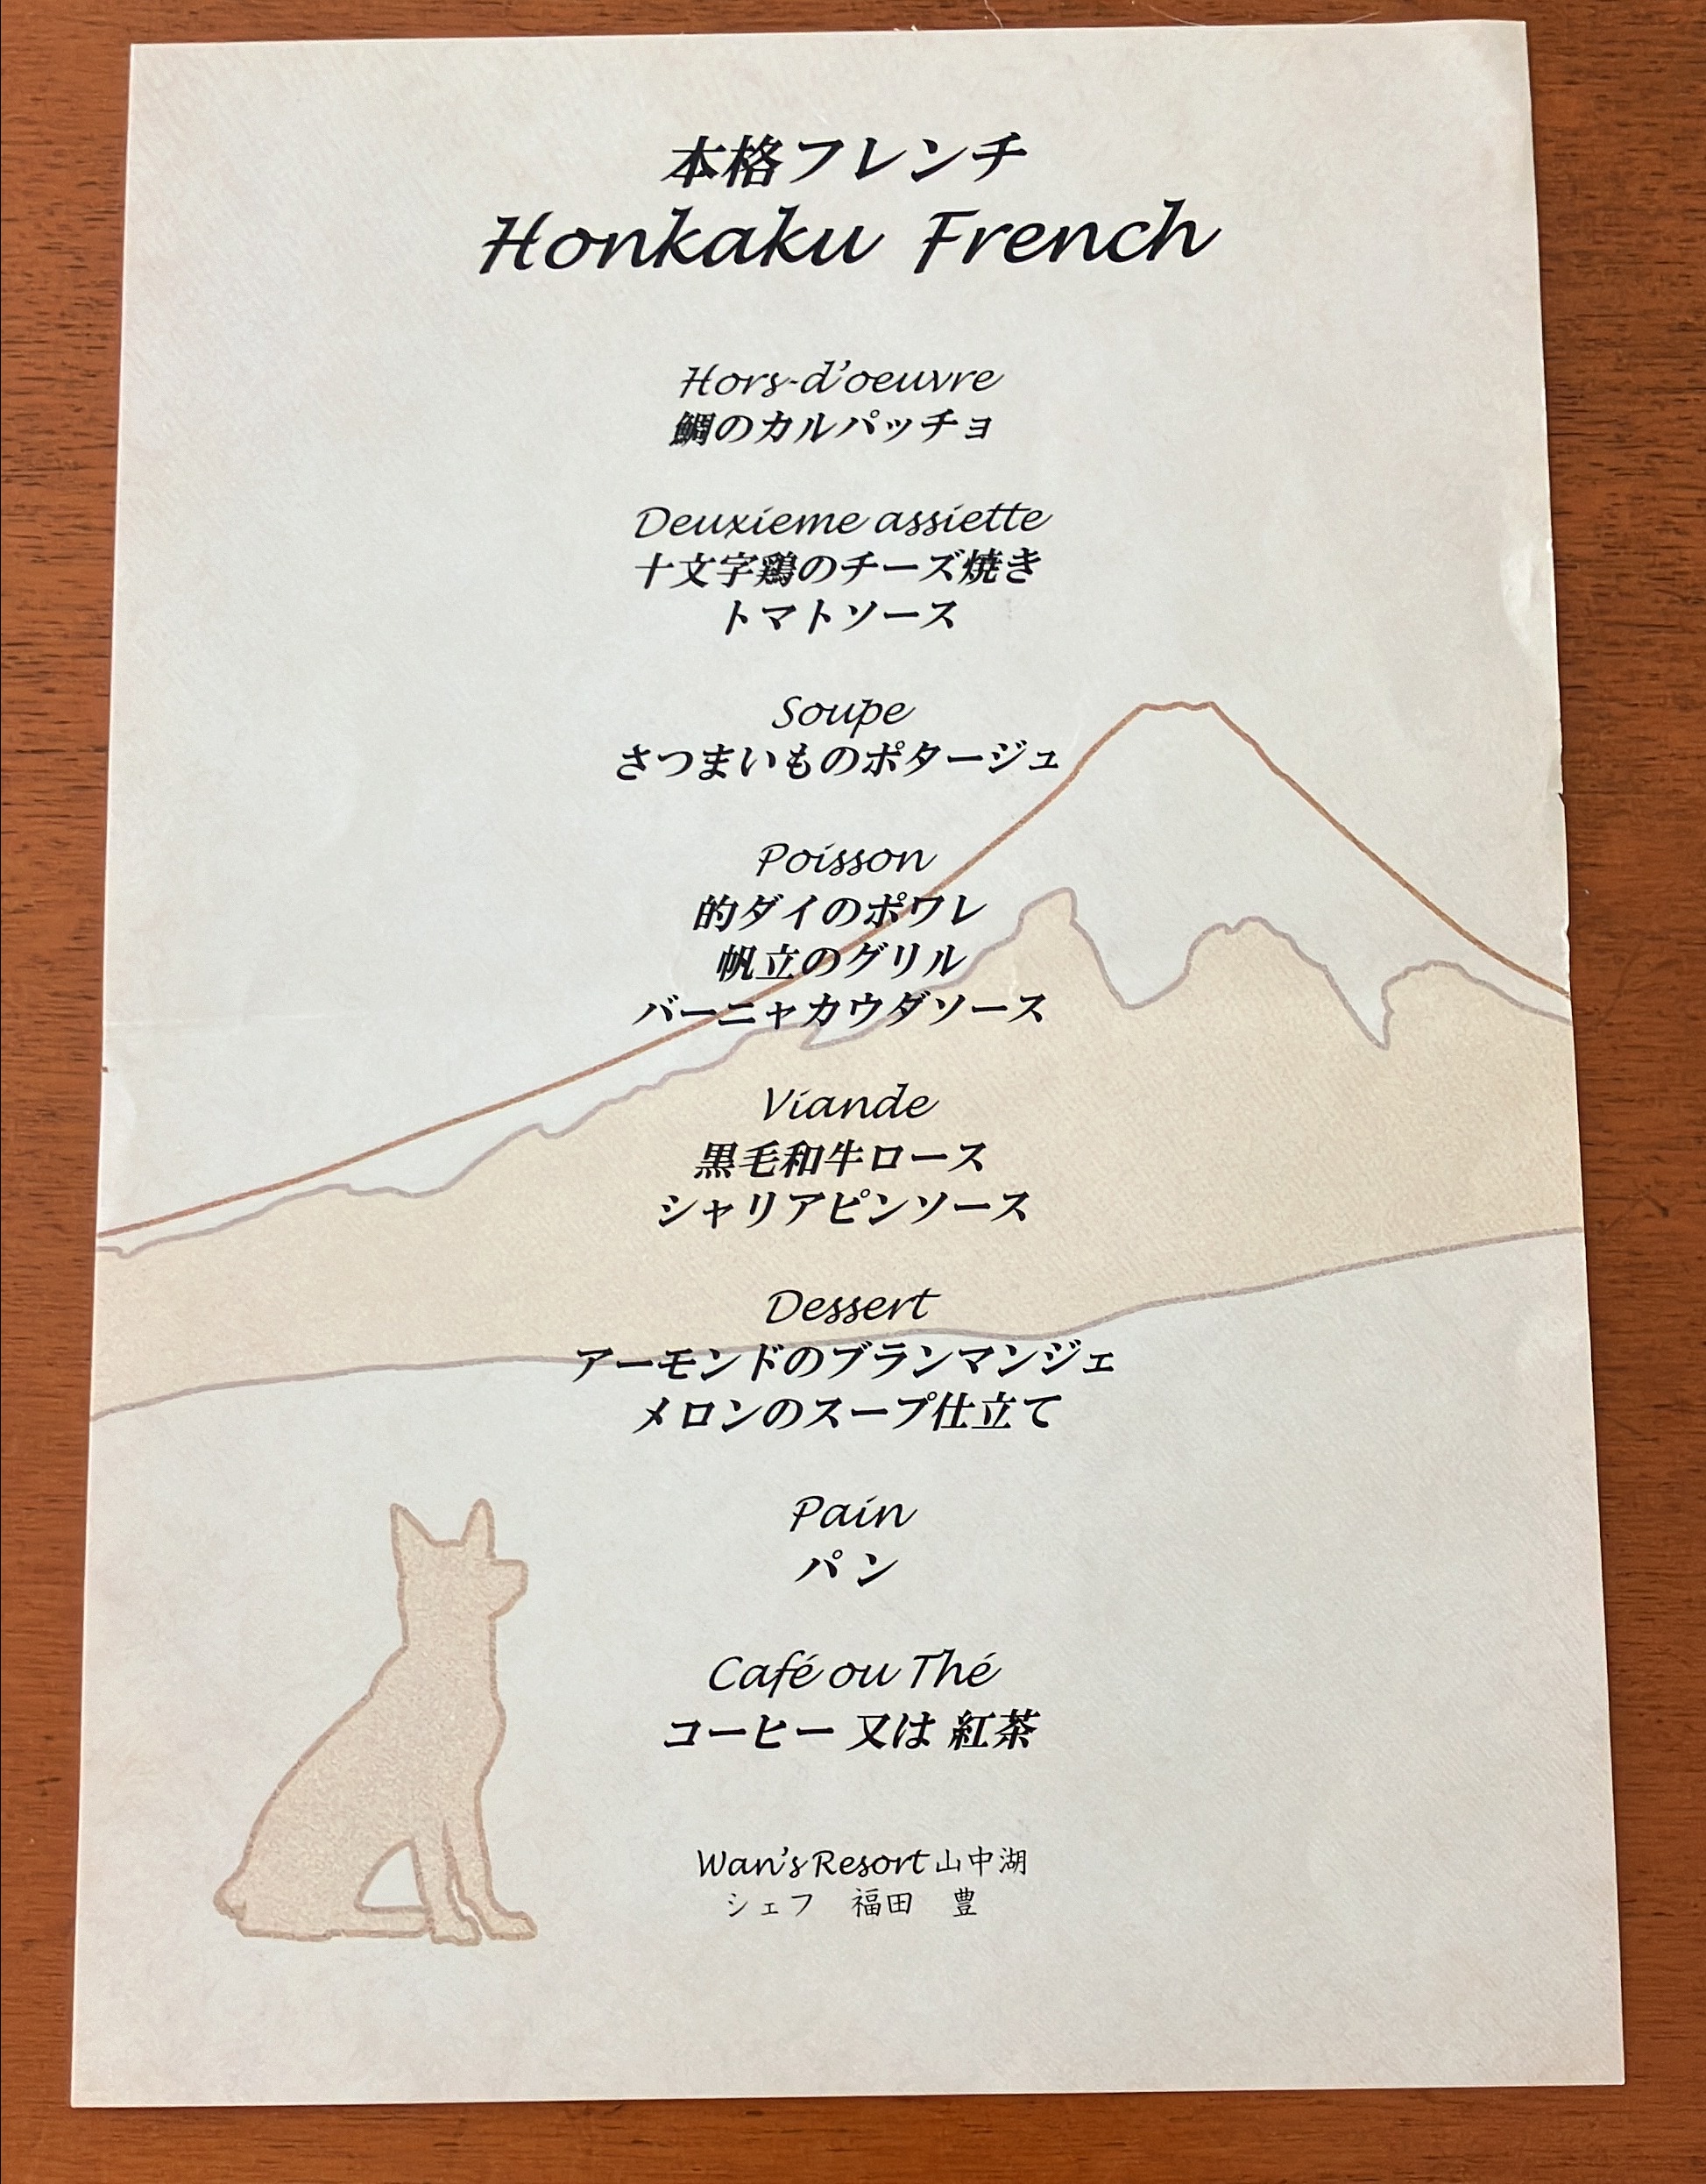 本格フレンチ
Honkaku French
Hors-d'oeuvre
鯛のカルパッチョ
Deuxieme assiette
十文字鶏のチーズ焼き
トマトソース
Soupe
さつまいものポタージュ
Poisson
的ダイのポワレ
帆立のグリル
バーニャカウダソース
Viande
黒毛和牛ロース
シャリアピンソース
Dessert
アーモンドのブランマンジェ
メロンのスープ仕立て
Pain
パン
Café ou Thé
コーヒー 又は 紅茶
Wan's Resort 山中湖
シェフ 福田 豊